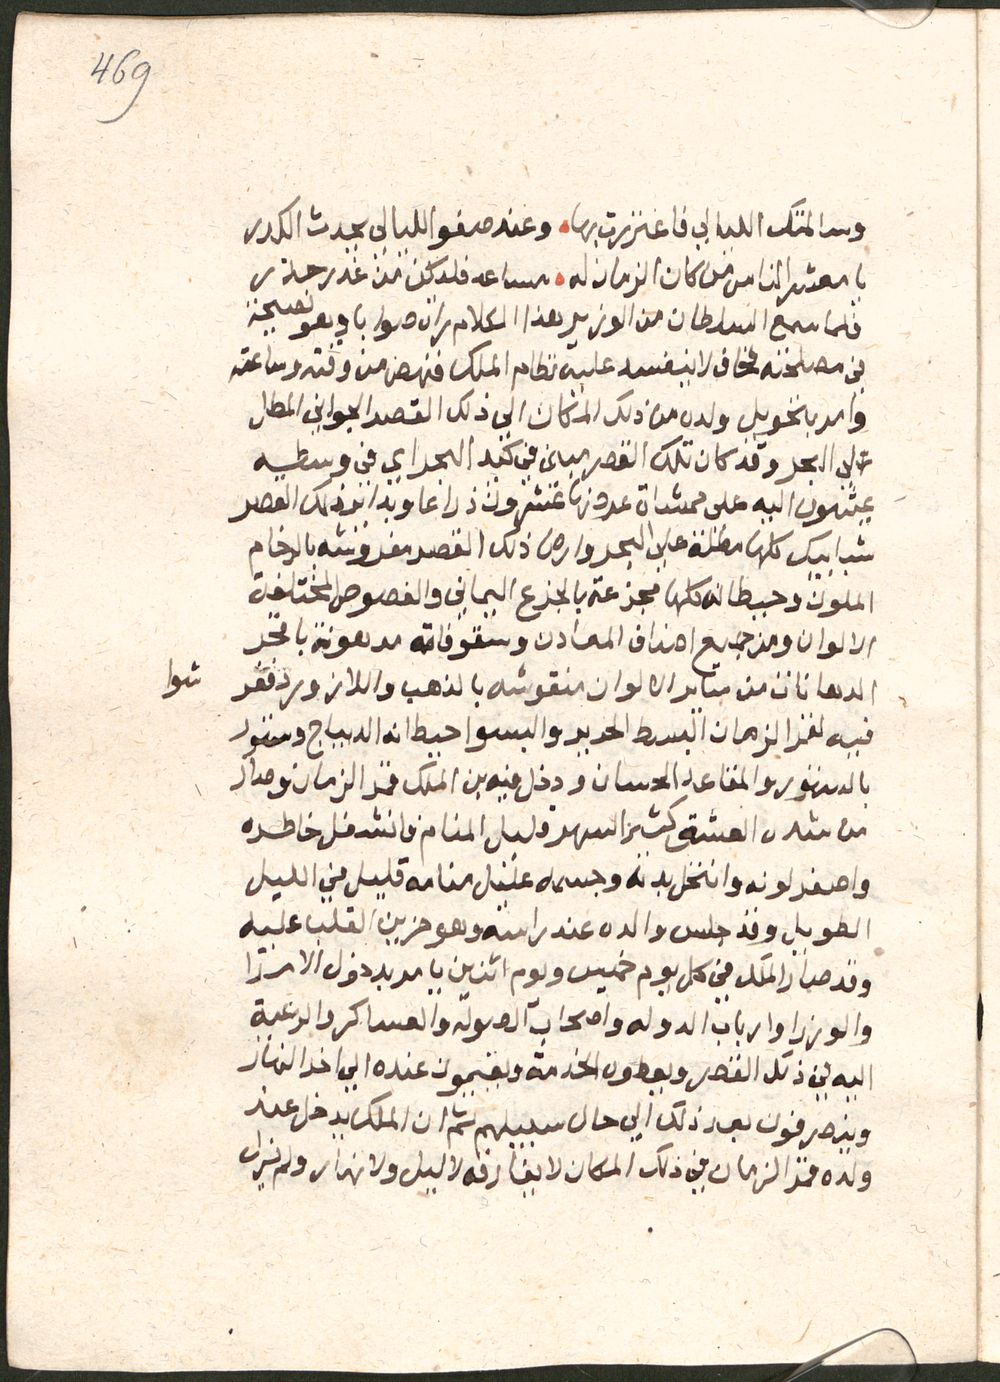 469
وسالمتك الليالي فاغتررت بها وعند صفو الليالي يحدث الكدر
يا معشر الناس من كان الزمان له مساعد فليكن من غدره حذر
فلما سمع السلطان من الوزير هذا الكلام راه صوابا وهو نصيحة
في مصلحته فخاف لا ينفسد عليه نظام الملك فنهض من وقته وساعته
وامر بتحويل ولده من ذلك المكان الي ذلك القصر الجواني المطل
علي البحر وقد كان تلك القصر مبني في كبد البحر اي في وسطه
يمشون اليه علي ممشاة عرضها عشرون ذراعا وبداير ذلك القصر
شبابيك كلها مطلة علي البحر وارض ذلك القصر مفروشه بالرخام
الملون وحيطانه كلها مجزعة بالجزع اليماني والفصوص المختلفة
الالوان ومن جميع اصناف المعادن وسقوفاته مدهونة بافخر
الدهانات من ساير الالوان منقوشه بالذهب واللازورد ففر
شوا
فيه لقمر الزمان البسط الحرير والبسوا حيطانه الديباج وستور
بالستور والمقاعد الحسان ودخل فيه بن الملك قمر الزمان وصار
من شدة العشق كثير السهر قليل المنام وانشغل خاطره
واصفر لونه وانتحل بدنه وجسمه عليل منامه قليل في الليل
الطويل وقد جلس والده عند راسه وهو حزين القلب عليه
وقد صار الملك في كل يوم خميس ويوم اثنين يامر بدخول الامرا
والوزرا وارباب الدوله واصحاب الصولة والعساكر والرعية
اليه في ذلك القصر ويعطون الخدمة ويقيمون عنده الي اخر النهار
وينصرفون بعد ذلك الي حال سبيلهم ثم ان الملك يدخل عند
ولده قمر الزمان في ذلك المكان لا يفارقه لا ليل ولا نهار ولم يزل